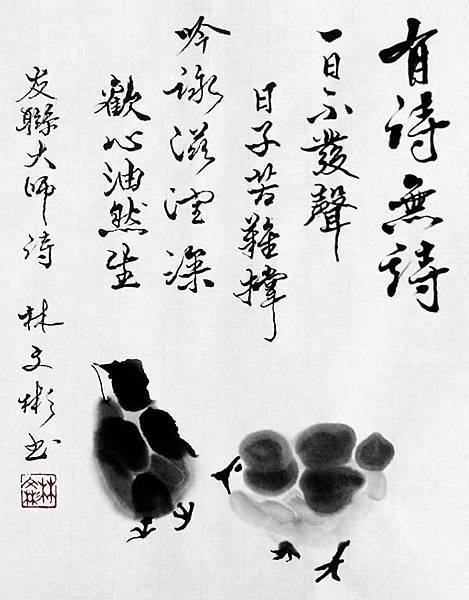 有詩無詩
一日不發聲
日子苦難撐
吟詠滋深
歡心油然生
友聯大師詩 林文彬書
林文彬